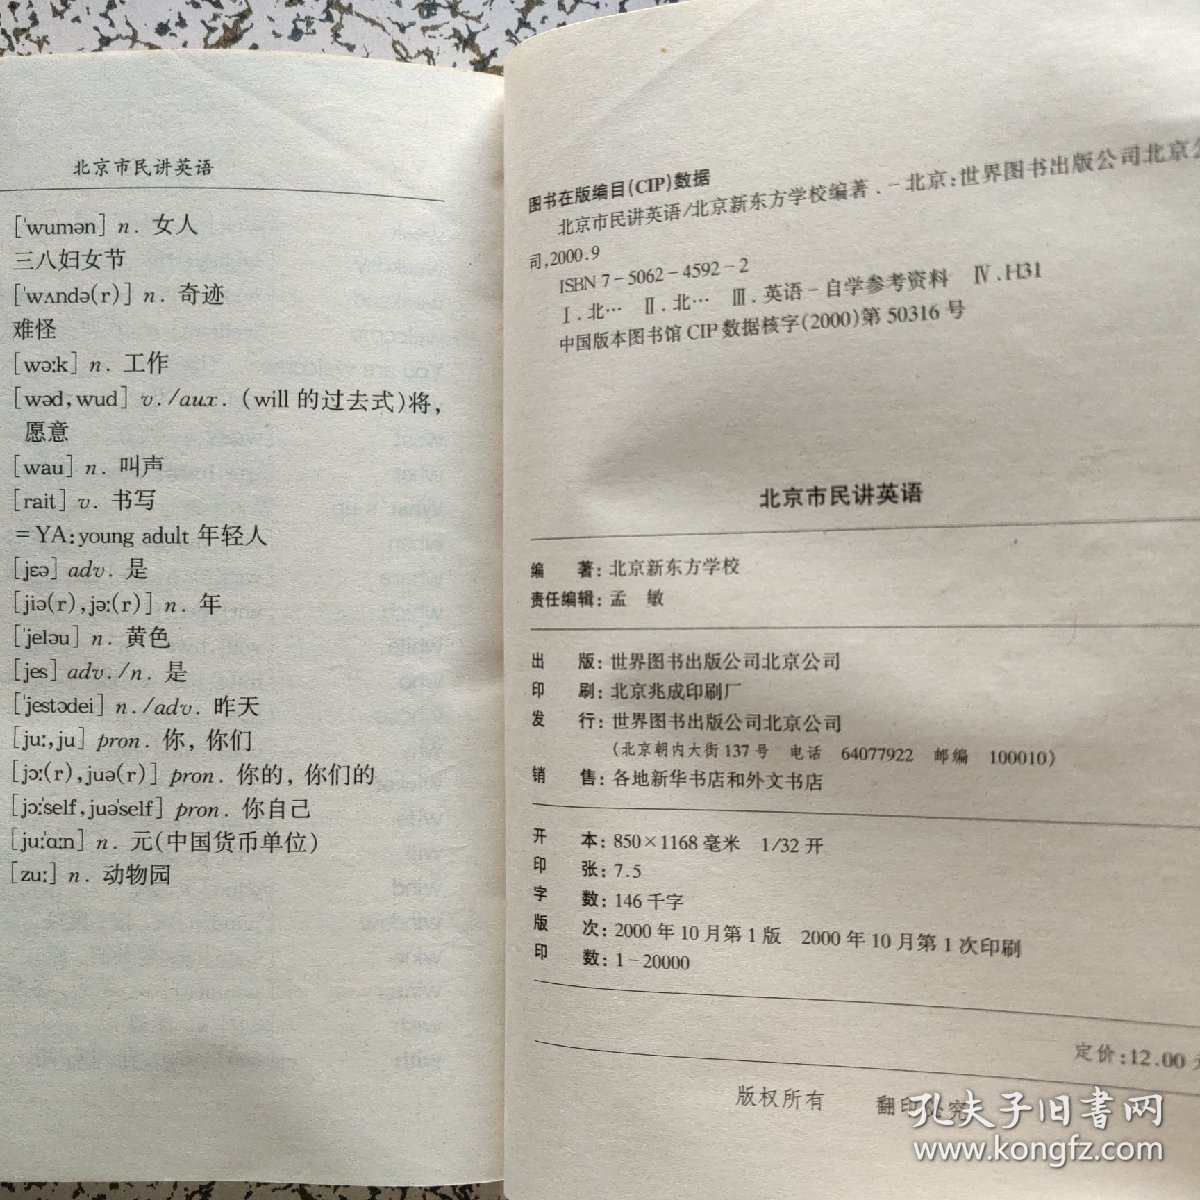 北京市民讲英语
['wumən] n. 女人
三八妇女节
['wʌndə(r)] n. 奇迹
难怪
[wə:k] n. 工作
[wəd,wud] v./aux. (will 的过去式)将,
愿意
[wau] n. 叫声
[rait] v. 书写
=YA:young adult 年轻人
[jɛə] adv. 是
[jiə(r),jə:(r)] n. 年
['jeləu] n. 黄色
[jes] adv./n. 是
['jestədei] n./adv. 昨天
[ju:,ju] pron. 你, 你们
[jɔ:(r),juə(r)] pron. 你的, 你们的
[jɔ:'self,juə'self] pron. 你自己
[ju:'ɑ:n] n. 元(中国货币单位)
[zu:] n. 动物园
图书在版编目(CIP)数据
北京市民讲英语/北京新东方学校编著.-北京:世界图书出版公司北京公
司,2000.9
ISBN 7-5062-4592-2
Ⅰ.北… Ⅱ.北… Ⅲ.英语-自学参考资料 Ⅳ.H31
中国版本图书馆 CIP 数据核字(2000)第 50316 号
北京市民讲英语
编 著: 北京新东方学校
责任编辑: 孟 敏
出 版: 世界图书出版公司北京公司
印 刷: 北京兆成印刷厂
发 行: 世界图书出版公司北京公司
(北京朝内大街 137 号 电话 64077922 邮编 100010)
销 售: 各地新华书店和外文书店
开 本: 850×1168 毫米 1/32 开
印 张: 7.5
字 数: 146 千字
版 次: 2000 年 10 月第 1 版 2000 年 10 月第 1 次印刷
印 数: 1-20000
定价:12.00 元
版权所有 翻印必究
孔夫子旧书网
www.kongfz.com